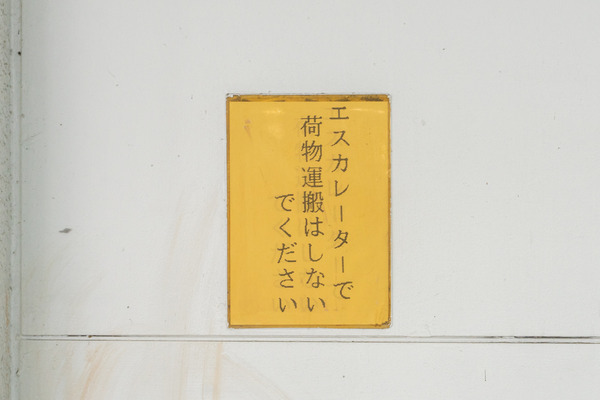 エスカレーターで
荷物運搬はしない
でください